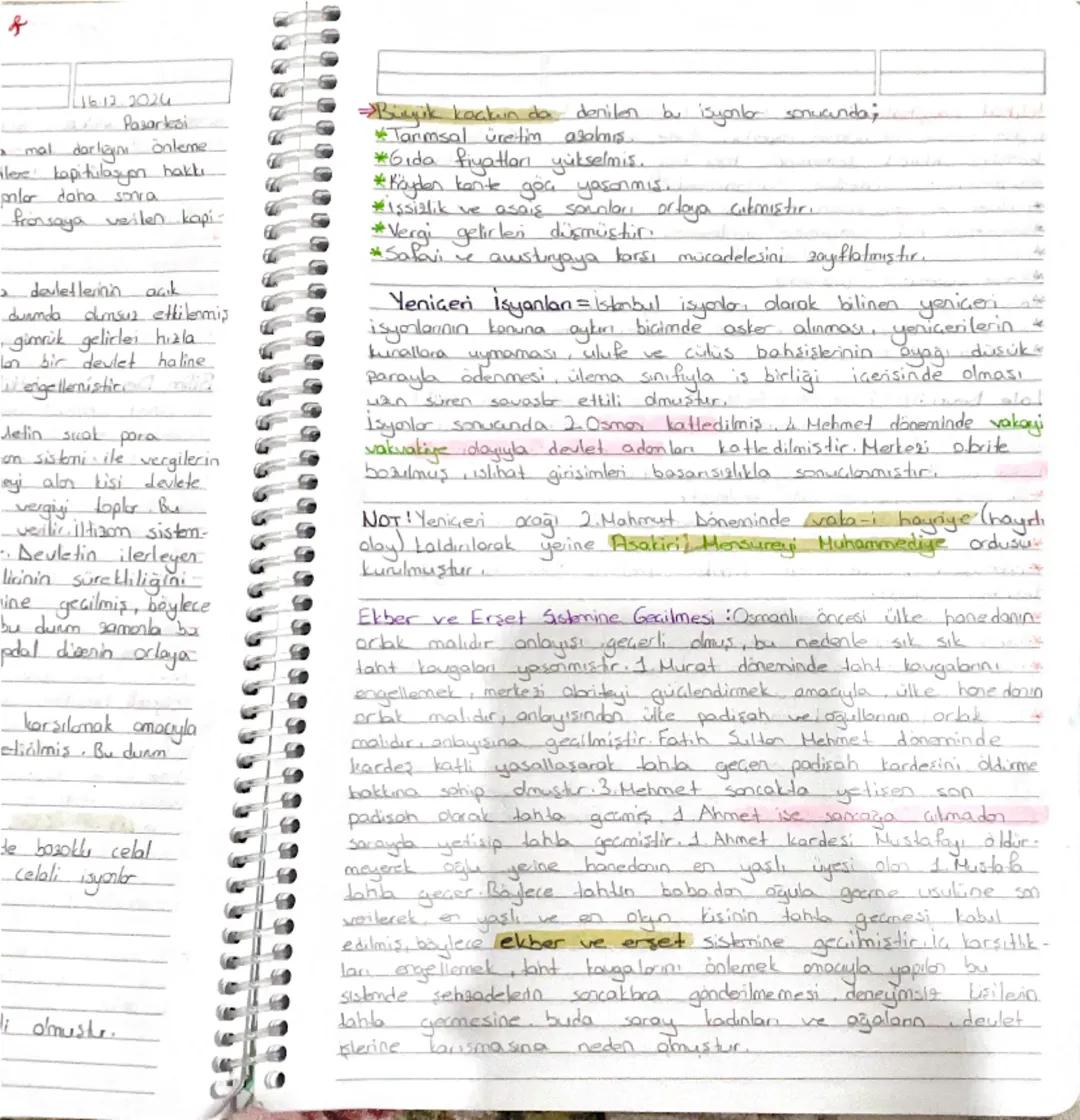 16.12.2024
Pazartesi
mal darlığını önleme
ilere kapitülasyon hakkı
onlar daha sonra
fransaya verilen kapi-
devletlerinin açık
durumda olmsuz etkilenmiş
gümrük gelirleri hızla
bir devlet haline
engellemiştir.
letin sıcak para
sistemi ile vergilerin
eyi alan kişi devlete
vergiyi toplar. Bu
verilir. iltizam sistem-
Devletin ilerleyen
licinin sürekliliğini
ine geçilmiş, böylece
bu durum zamanla
düzenin ortaya
karşılamak amacıyla
etirilmiş. Bu durum
de bozoklu celal
celali isyanlar
li olmuştur.
→Büyük kaçkun da denilen bu isyanlar sonucunda;
*Tarımsal üretim azalmış.
*Gıda fiyatları yükselmiş.
*Köyden kente göç yaşanmış.
*işsizlik ve asaiş sorunları ortaya çıkmıştır.
*Vergi gelirleri düşmüştür.
*Safavi ve avusturyaya karşı mücadelesini zayıflatmıştır.
Yeniçeri İsyanları=istanbul isyanları olarak bilinen yeniçeri
isyanlarının kanuna aykırı biçimde asker alınması, yeniçerilerin
kurallara uymaması, ulufe ve cülüs bahşişlerinin ayağı düşük
parayla ödenmesi, ülema sınıfıyla iş birliği içerisinde olması
uzun süren savaşlar etkili olmuştur.
İsyanlar sonucunda 2.Osman katledilmiş, 4. Mehmet döneminde vakayi
vakvakiye olayıyla devlet adamları katledilmiştir. Merkezi otorite
bozulmuş, ıslıhat girişimleri başarısızlıkla sonuclanmıştır.
NOT! Yeniçeri ocağı 2.Mahmut Döneminde vaka-i hayriye (hayırlı
olay) kaldırılarak yerine Asakiri Mensureyi Muhammediye ordusu
kurulmuştur.
Ekber ve Erşet Sistemine Geçilmesi :Osmanlı öncesi ülke hanedanın
ortak malıdır anlayışı geçerli olmuş, bu nedenle sık sık
taht kavgaları yaşanmıştır. 1. Murat döneminde taht kavgalarını
engellemek, merkezi otoriteyi güçlendirmek amacıyla, ülke hanedanın
ortak malıdır, anlayışından ülke padişah ve oğullarının ortak
malıdır, anlayışına geçilmiştir. Fatih Sultan Mehmet döneminde
kardeş katli yasallaşarak tahta geçen padişah kardeşini öldürme
hakkına sahip olmuştur. 3. Mehmet sancakta yetişen son
padişah olarak tahta geçmiş, 1 Ahmet ise sancağa çıkmadan
sarayda yetişip tahta geçmiştir. 1. Ahmet kardeşi Mustafayı öldür-
meyerek oğlu yerine hanedanın en yaşlı üyesi olan 1. Mustafa
tahta geçer. Böylece tahtın babadan oğula geçme usulüne son
verilerek, en yaşlı ve en olgun kişinin tahta geçmesi kabul
edilmiş, böylece ekber ve erşet sistemine geçilmiştir. iç karşıtlık-
ları engellemek, taht kavgalarını önlemek amacıyla yapılan bu
sistemde şehzadelerin sancaklara gönderilmemesi, deneyimsiz kişilerin
tahta geçmesine, buda saray kadınları ve ağaların, devlet
işlerine karışmasına neden olmuştur.